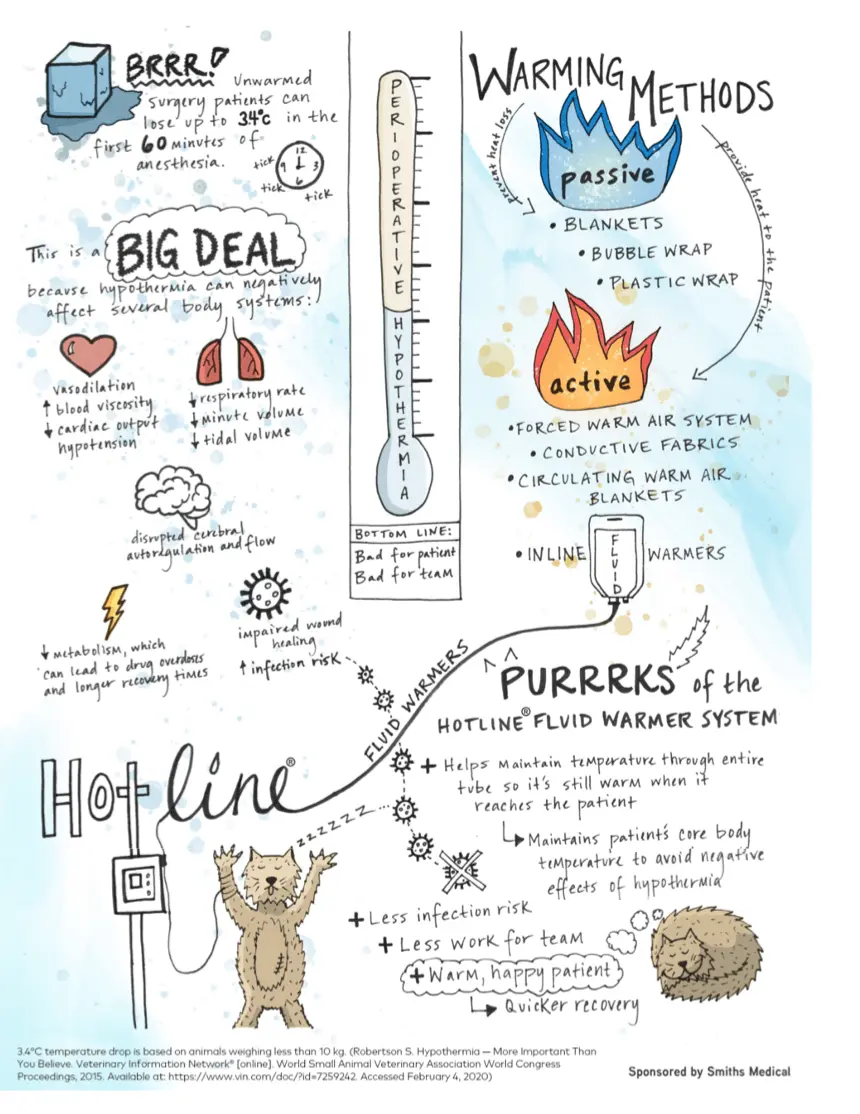 BRRR!
Unwarmed
surgery patients can
lose up to 3.4°C in the
first 60 minutes of
anesthesia.
12
9 3
6
tick
tick
tick
This is a BIG DEAL
because hypothermia can negatively
affect several body systems:
vasodilation
↑ blood viscosity
↓ cardiac output
hypotension
↓ respiratory rate
↓ minute volume
↓ tidal volume
disrupted cerebral
autoregulation and flow
↓ metabolism, which
can lead to drug overdoses
and longer recovery times
impaired wound
healing
↑ infection risk
PERIOPERATIVE
HYPOTHERMIA
BOTTOM LINE:
Bad for patient
Bad for team
WARMING METHODS
prevent heat loss
passive
• BLANKETS
• BUBBLE WRAP
• PLASTIC WRAP
provide heat to the patient
active
• FORCED WARM AIR SYSTEM
• CONDUCTIVE FABRICS
• CIRCULATING WARM AIR
BLANKETS
• INLINE FLUID WARMERS
FLUID WARMERS
Hotline®
zzzzzzz...
PURRRKS of the
HOTLINE® FLUID WARMER SYSTEM
+ Helps maintain temperature through entire
tube so it's still warm when it
reaches the patient
↳ Maintains patient's core body
temperature to avoid negative
effects of hypothermia
+ Less infection risk
+ Less work for team
+ Warm, happy patient
↳ Quicker recovery
3.4°C temperature drop is based on animals weighing less than 10 kg. (Robertson S. Hypothermia — More Important Than
You Believe. Veterinary Information Network® [online]. World Small Animal Veterinary Association World Congress
Proceedings, 2015. Available at: https://www.vin.com/doc/?id=7259242. Accessed February 4, 2020)
Sponsored by Smiths Medical